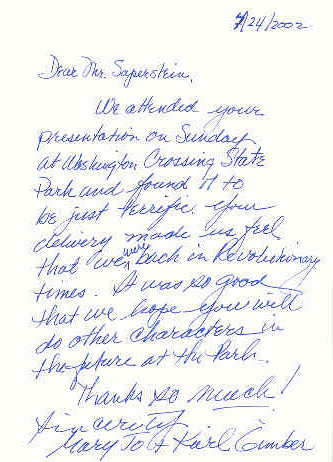 7/24/2002
Dear Mr. Saperstein,
We attended your
presentation on Sunday
at Washington Crossing State
Park and found it to
be just terrific. Your
delivery made us feel
that we were back in Revolutionary
times. It was so good
that we hope you will
do other characters in
the future at the Park.
Thanks so much!
Sincerely
Mary Jo & Karl